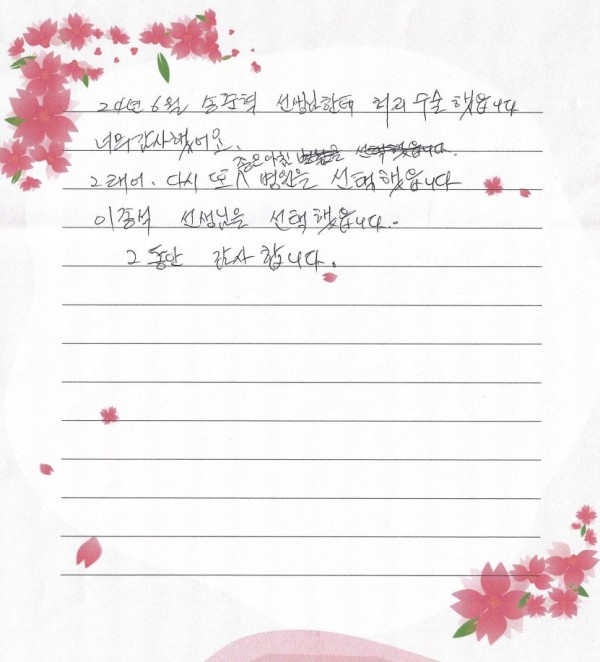 24년 6월 송준혁 선생님한테 허리 수술 했읍니다
너무 감사했어요.
그래서. 다시 또 좋은아침 병원을 선택했읍니다
이종석 선생님을 선택했읍니다.
그동안 감사합니다.